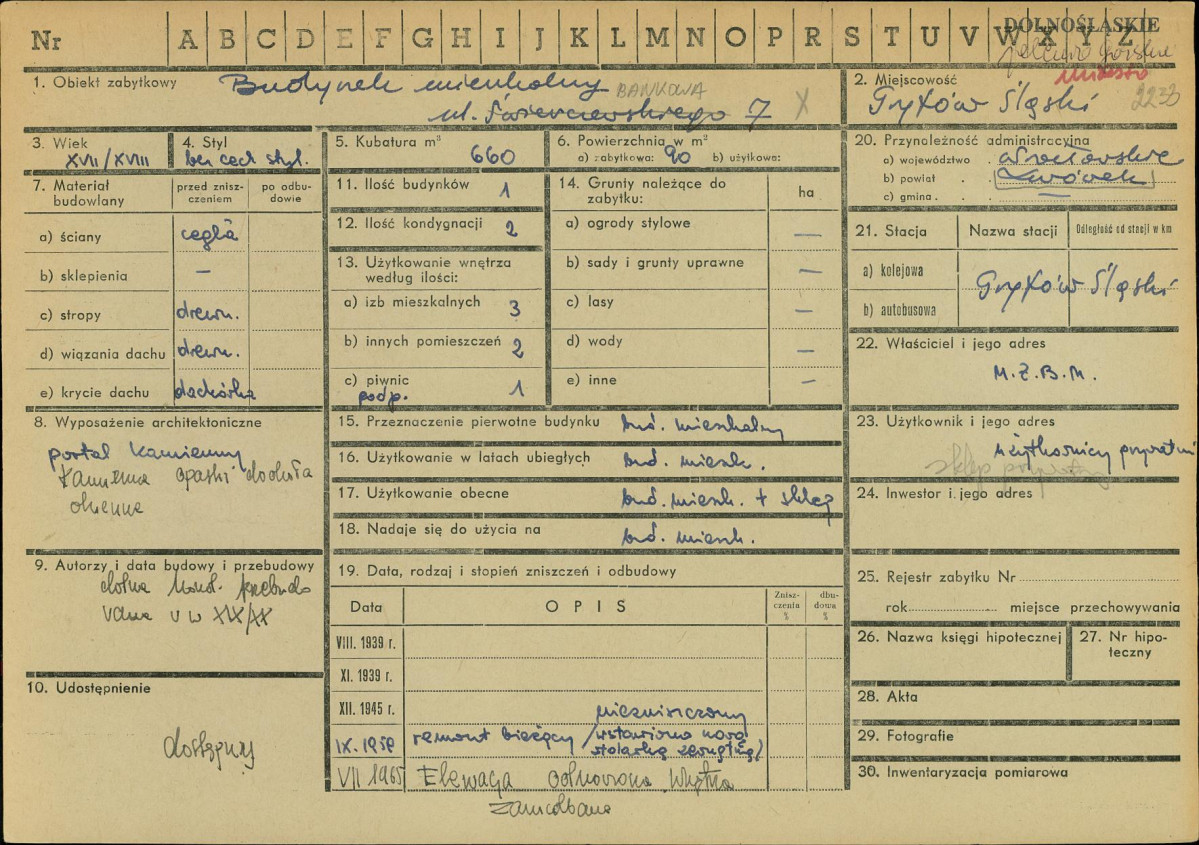 Nr A B C D E F G H I J K L M N O P R S T U V W X Y Z
DOLNOŚLĄSKIE
miasto
1. Obiekt zabytkowy Budynek mieszkalny BANKOWA
ul. Świerczewskiego 7 X
2. Miejscowość
Gryfów Śląski 2233
3. Wiek
XVII/XVIII
4. Styl
bez cech styl.
5. Kubatura m³
660
6. Powierzchnia w m²
a) zabytkowa: 90 b) użytkowa:
7. Materiał budowlany
przed zniszczeniem
po odbudowie
a) ściany cegła
b) sklepienia –
c) stropy drewn.
d) wiązania dachu drewn.
e) krycie dachu dachówka
8. Wyposażenie architektoniczne
portal kamienny
kamienna opaski dookoła
okienne
9. Autorzy i data budowy i przebudowy
w XIX/XX
10. Udostępnienie
dostępny
11. Ilość budynków 1
12. Ilość kondygnacji 2
13. Użytkowanie wnętrza
według ilości:
a) izb mieszkalnych 3
b) innych pomieszczeń 2
c) piwnic 1
podp.
14. Grunty należące do
zabytku:
ha
a) ogrody stylowe –
b) sady i grunty uprawne –
c) lasy –
d) wody –
e) inne –
15. Przeznaczenie pierwotne budynku bud. mieszkalny
16. Użytkowanie w latach ubiegłych bud. mieszk.
17. Użytkowanie obecne bud. mieszk. + sklep
18. Nadaje się do użycia na bud. mieszk.
19. Data, rodzaj i stopień zniszczeń i odbudowy
Data OPIS Zniszczenia % dbudowa %
VIII. 1939 r.
XI. 1939 r.
XII. 1945 r. niezniszczony
IX. 1959 remont bieżący /wstawiono nową
stolarkę zewnętrzną/
VII 1965 Elewacja odnowiona
zaniedbana
20. Przynależność administracyjna
a) województwo . Wrocławskie
b) powiat . . Lwówek
c) gmina . . –
21. Stacja Nazwa stacji Odległość od stacji w km
a) kolejowa
Gryfów Śląski
b) autobusowa
22. Właściciel i jego adres
M.Z.B.M.
23. Użytkownik i jego adres
użytkownicy prywatni
sklep prywatny
24. Inwestor i jego adres
25. Rejestr zabytku Nr
rok miejsce przechowywania
26. Nazwa księgi hipotecznej
27. Nr hipoteczny
28. Akta
29. Fotografie
30. Inwentaryzacja pomiarowa